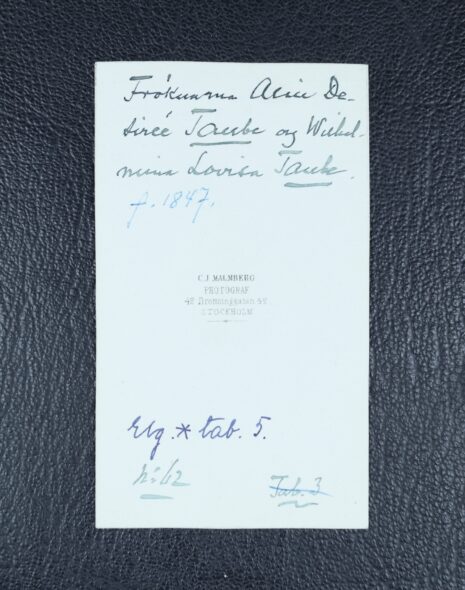 Fröknarna Alice De-
sireé Taube og Wilhel-
mina Lovisa Taube.
f. 1847.
C J MALMBERG
PHOTOGRAF
42 Drottninggatan 42
STOCKHOLM
Elg. * tab. 5.
N:o 62
Tab. 3